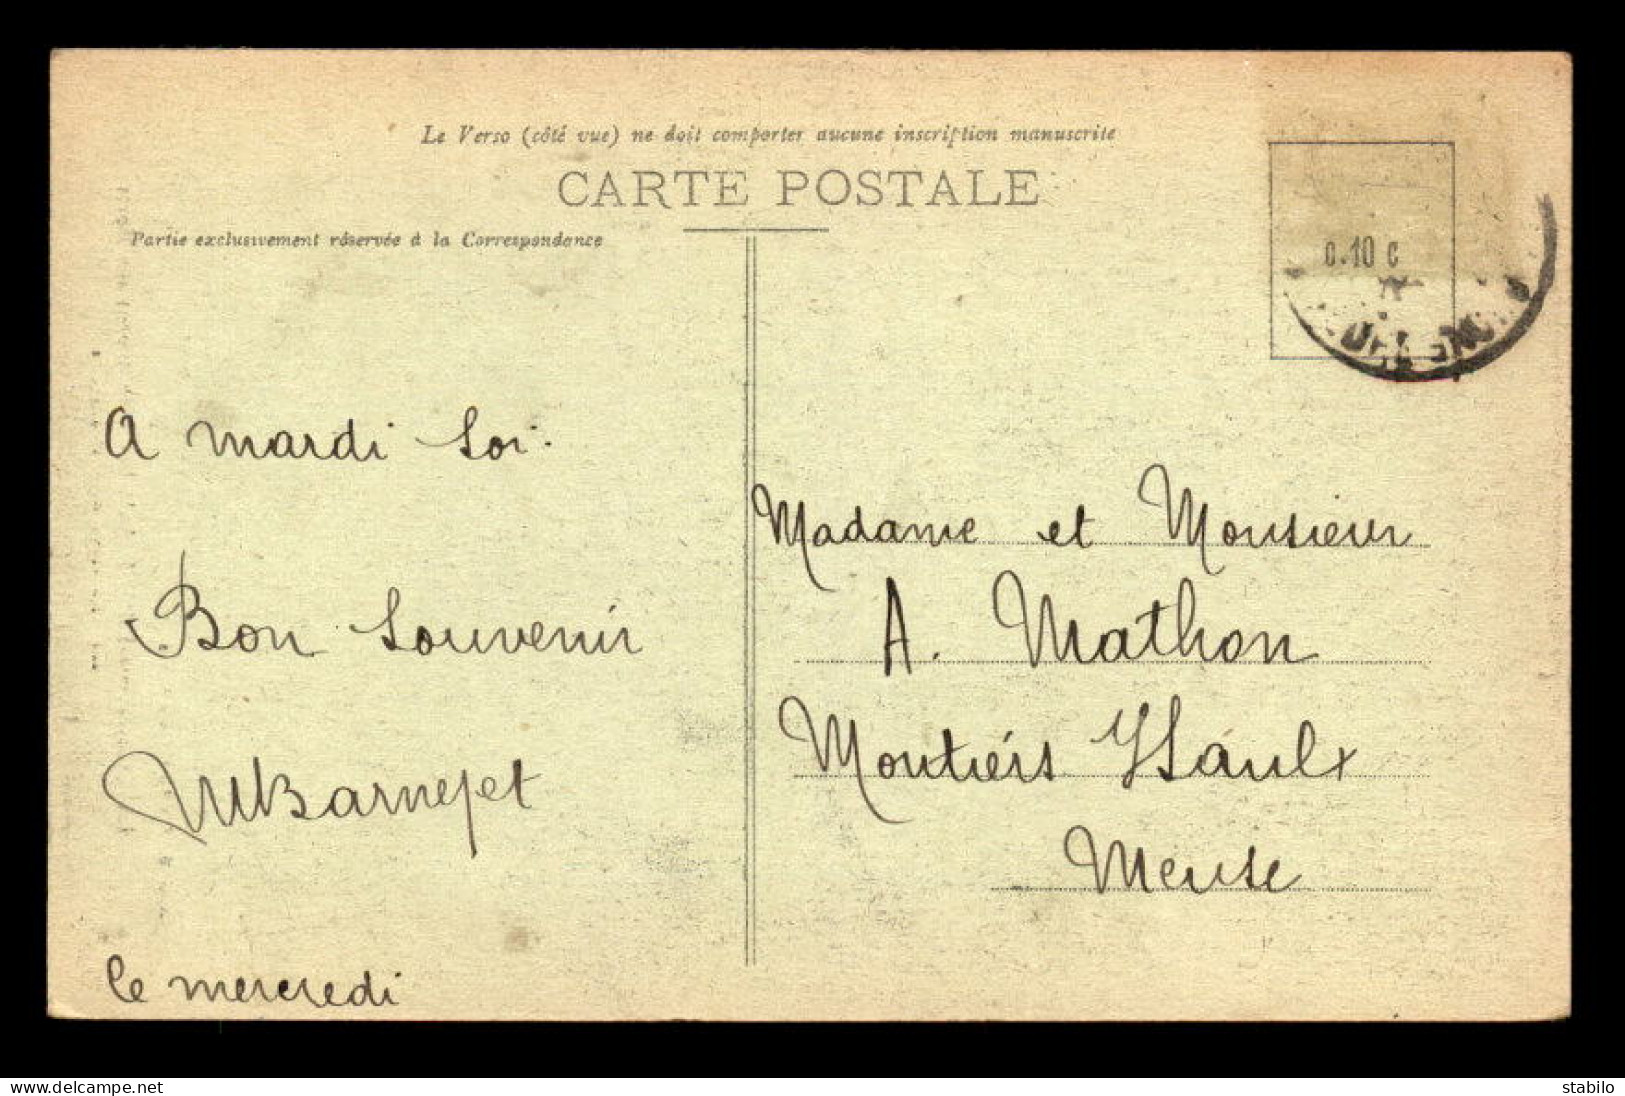 Le Verso (côté vue) ne doit comporter aucune inscription manuscrite
CARTE POSTALE
Partie exclusivement réservée à la Correspondance
0.10 c
A mardi soi.
Bon souvenir
le mercredi
Madame et Monsieur
A. Mathon
Montiérs S/Saulx
Meuse
delcampe.net
stabilo